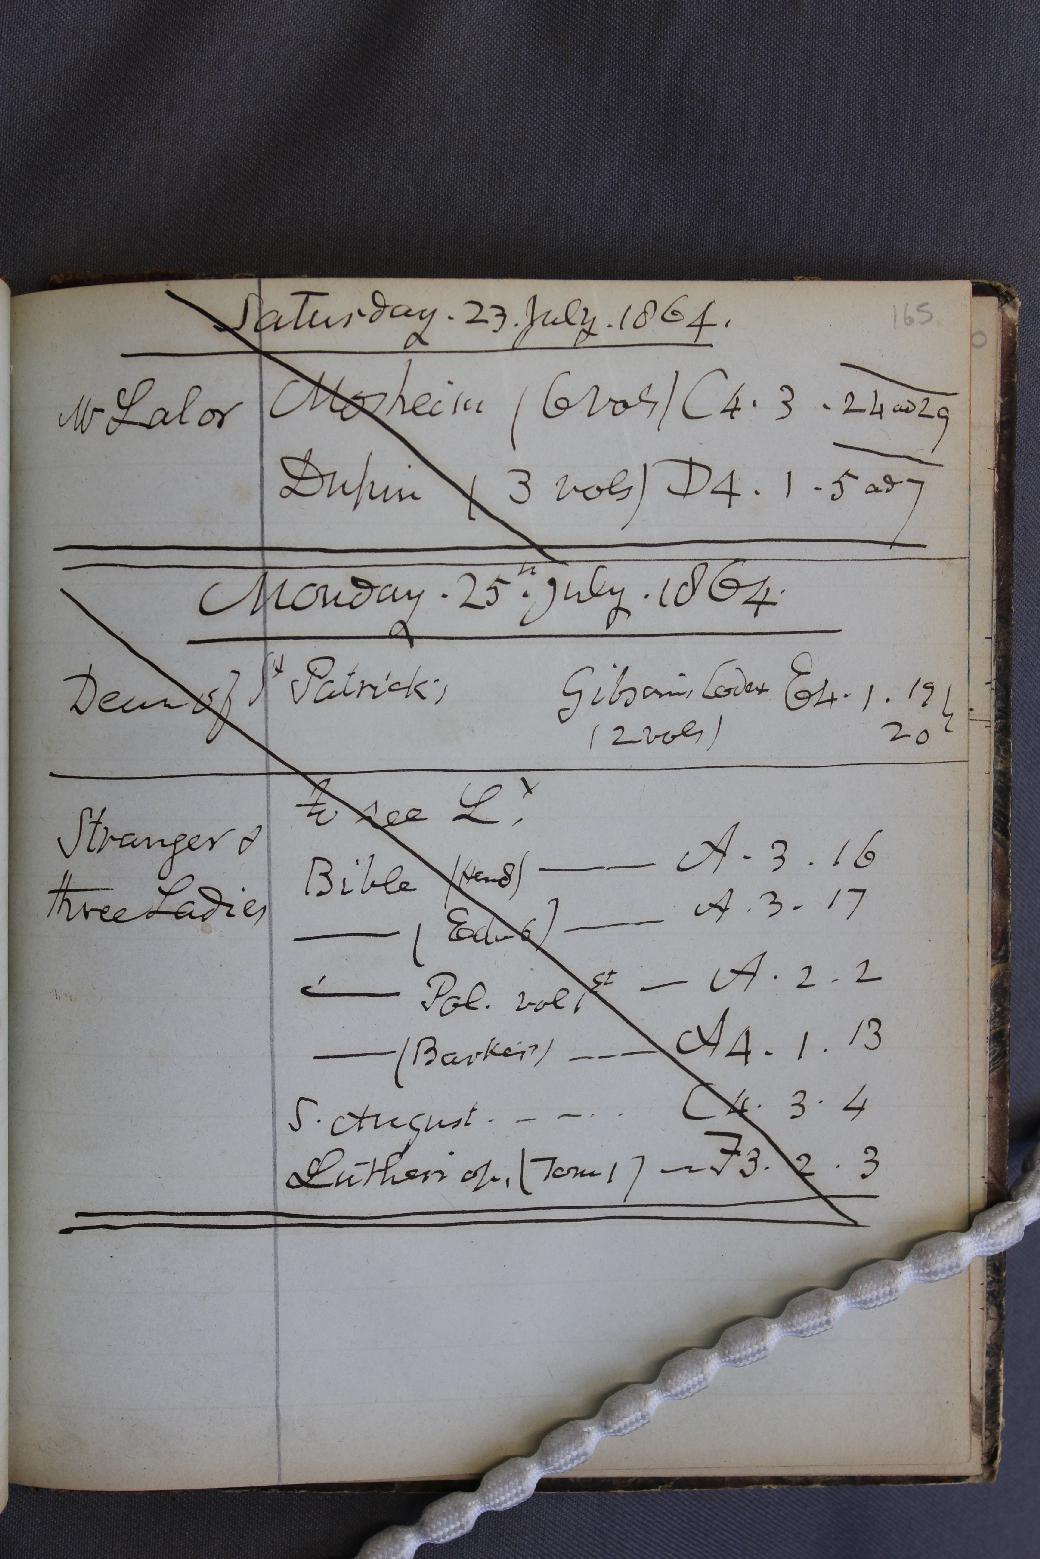 165.
Saturday. 23. July. 1864.
Mr Lalor Mosheim (6 vols) C4. 3. 24 ad 29
Dupin (3 vols) D4. 1. 5 ad 7
Monday. 25th. July. 1864.
Dean of St Patrick's Gibson's Codex E4. 1. 19
(2 vols) 20
to see Ly.
Stranger & three Ladies
Bible — A. 3. 16
— A. 3. 17
— Pol. vol. 1st — A. 2. 2
— (Barker) --- A4. 1. 13
S. August. - - . . C4. 3. 4
Lutheri op. (Tom 1) — F3. 2. 3